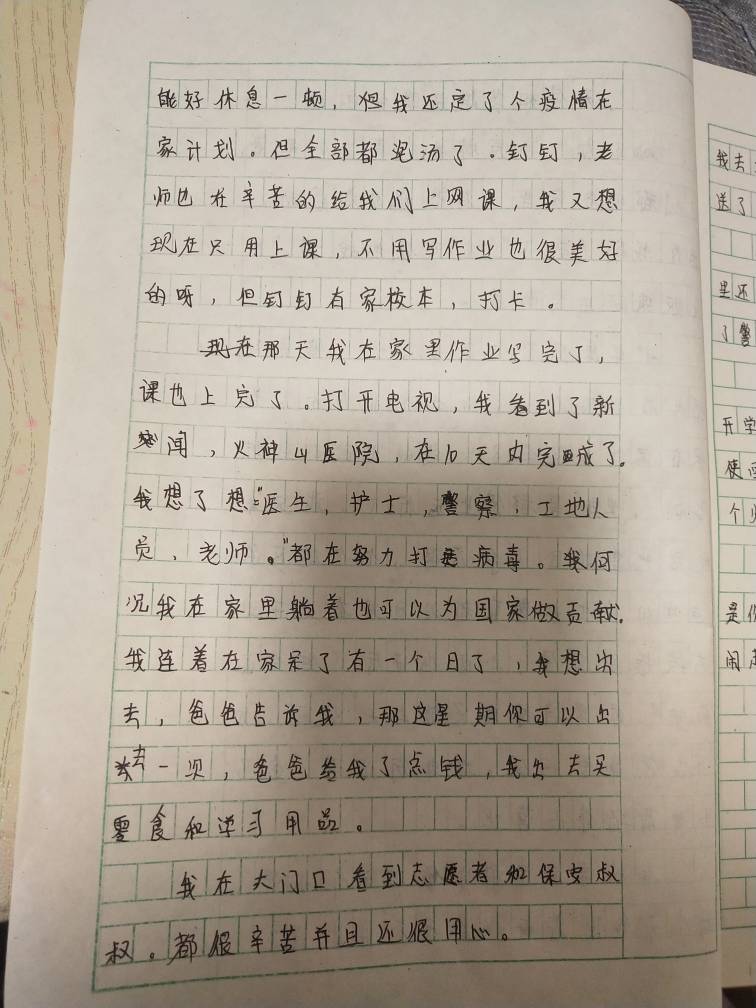 能好休息一顿，但我还定了个疫情在
家计划。但全部都泡汤了。钉钉，老
师也在辛苦的给我们上网课，我又想
现在只用上课，不用写作业也很美好
的呀，但钉钉有家校本，打卡。
那天我在家里作业写完了，
课也上完了。打开电视，我看到了新
闻，火神山医院，在10天内完成了。
我想了想："医生，护士，警察，工地人
员、老师。"都在努力打 病毒。我何
况我在家里躺着也可以为国家做贡献.
我连着在家呆了有一个日了，我想出
去，爸爸告诉我，那这星期你可以出
去一次，爸爸给我了点钱，我出去买
零食和学习用品。
我在大门口看到志愿者和保安叔
叔。都很辛苦并且还很用心。
我去
送了
里还
了警
开学
使
个
是
闹